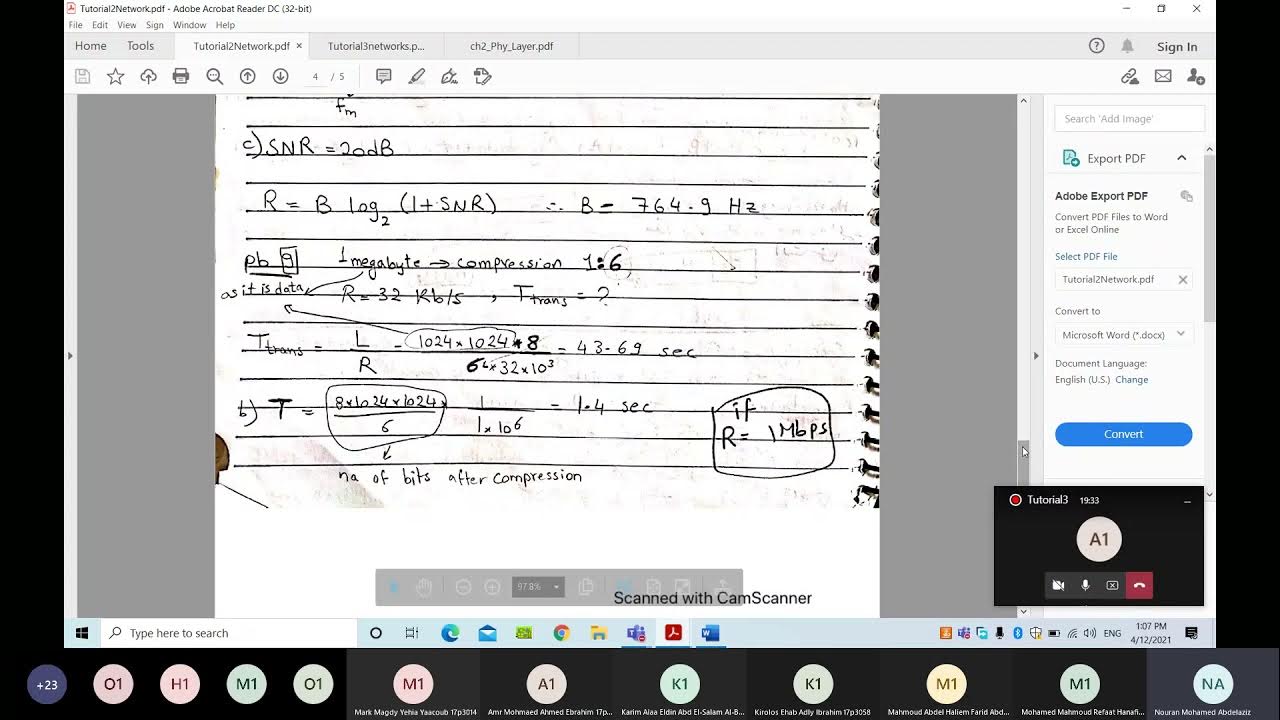 Tutorial2Network.pdf - Adobe Acrobat Reader DC (32-bit)
File Edit View Sign Window Help
Home Tools Tutorial2Network.pdf × Tutorial3networks.p... ch2_Phy_Layer.pdf Sign In
4 / 5
fm
c) SNR = 20dB
R = B log2 (1+SNR) ∴ B = 764.9 Hz
pb 9 1 megabyte → compression 1:6
as it is data R = 32 Kb/s , Ttrans = ?
Ttrans = L / R = 1024 × 1024 * 8 / 6 * 32 × 10^3 = 43.69 sec
b) T = 8×1024×1024 / 6 × 1 / 1×10^6 = 1.4 sec
if
R = 1 Mbps
na of bits after compression
Scanned with CamScanner
97.8%
Search 'Add Image'
Export PDF
Adobe Export PDF
Convert PDF Files to Word
or Excel Online
Select PDF File
Tutorial2Network.pdf
Convert to
Microsoft Word (*.docx)
Document Language:
English (U.S.) Change
Convert
Tutorial3 19:33
A1
Type here to search
ENG
1:07 PM
4/12/2021
+23 O1 H1 M1 O1 M1 A1 K1 K1 M1 M1 NA
Mark Magdy Yehia Yaacoub 17p3014
Amr Mohmaed Ahmed Ebrahim 17p...
Karim Alaa Eldin Abd El-Salam Al-B...
Kirolos Ehab Adly Ibrahim 17p3058
Mahmoud Abdel Haliem Farid Abd...
Mohamed Mahmoud Refaat Hanafi...
Nouran Mohamed Abdelaziz